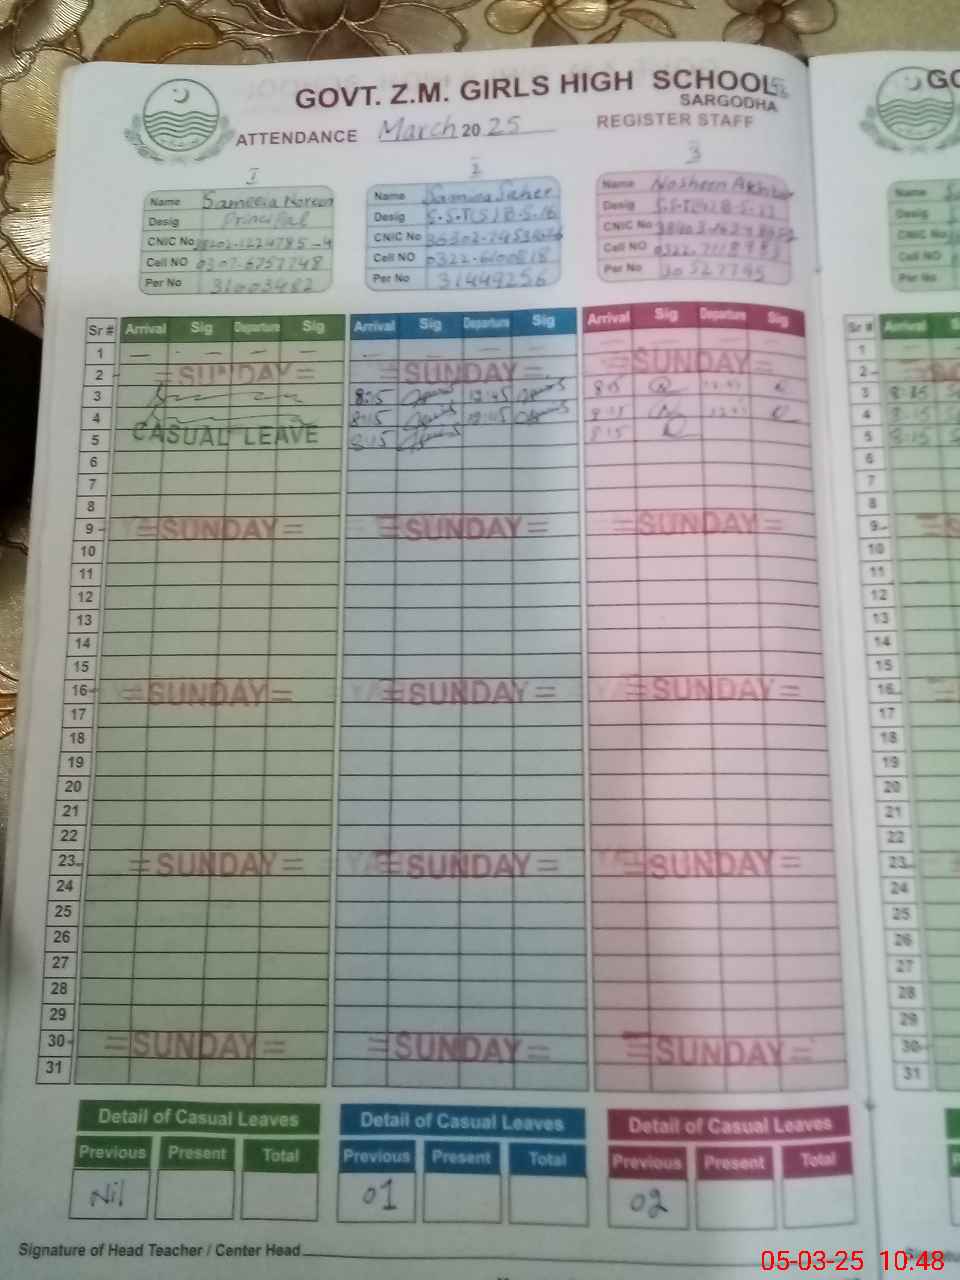 GOVT. Z.M. GIRLS HIGH SCHOOL
SARGODHA
ATTENDANCE March 2025 REGISTER STAFF
1 2 3
Name Sameeia Noreen
Desig Principal
CNIC No
Cell NO 0307-6757748
Per No 31003482
Name Samina Seher
Desig
CNIC No
Cell NO
Per No 31449256
Name Nosheen Akhtar
Desig
CNIC No
Cell NO
Per No 30527745
Sr # Arrival Sig Departure Sig Arrival Sig Departure Sig Arrival Sig Departure Sig Sr # Arrival
1 — — — — — — — — 1
2 =SUNDAY= =SUNDAY= =SUNDAY= 2
3 8:15 12:45 8:15 3 8:15
4 8:15 4 8:15
5 CASUAL LEAVE 8:15 8:15 5 8:15
6 6
7 7
8 8
9 =SUNDAY= =SUNDAY= =SUNDAY= 9
10 10
11 11
12 12
13 13
14 14
15 15
16 =SUNDAY= =SUNDAY= =SUNDAY= 16
17 17
18 18
19 19
20 20
21 21
22 22
23 =SUNDAY= =SUNDAY= =SUNDAY= 23
24 24
25 25
26 26
27 27
28 28
29 29
30 =SUNDAY= =SUNDAY= =SUNDAY= 30
31 31
Detail of Casual Leaves Detail of Casual Leaves Detail of Casual Leaves
Previous Present Total Previous Present Total Previous Present Total
Nil 01 02
Signature of Head Teacher / Center Head
05-03-25 10:48